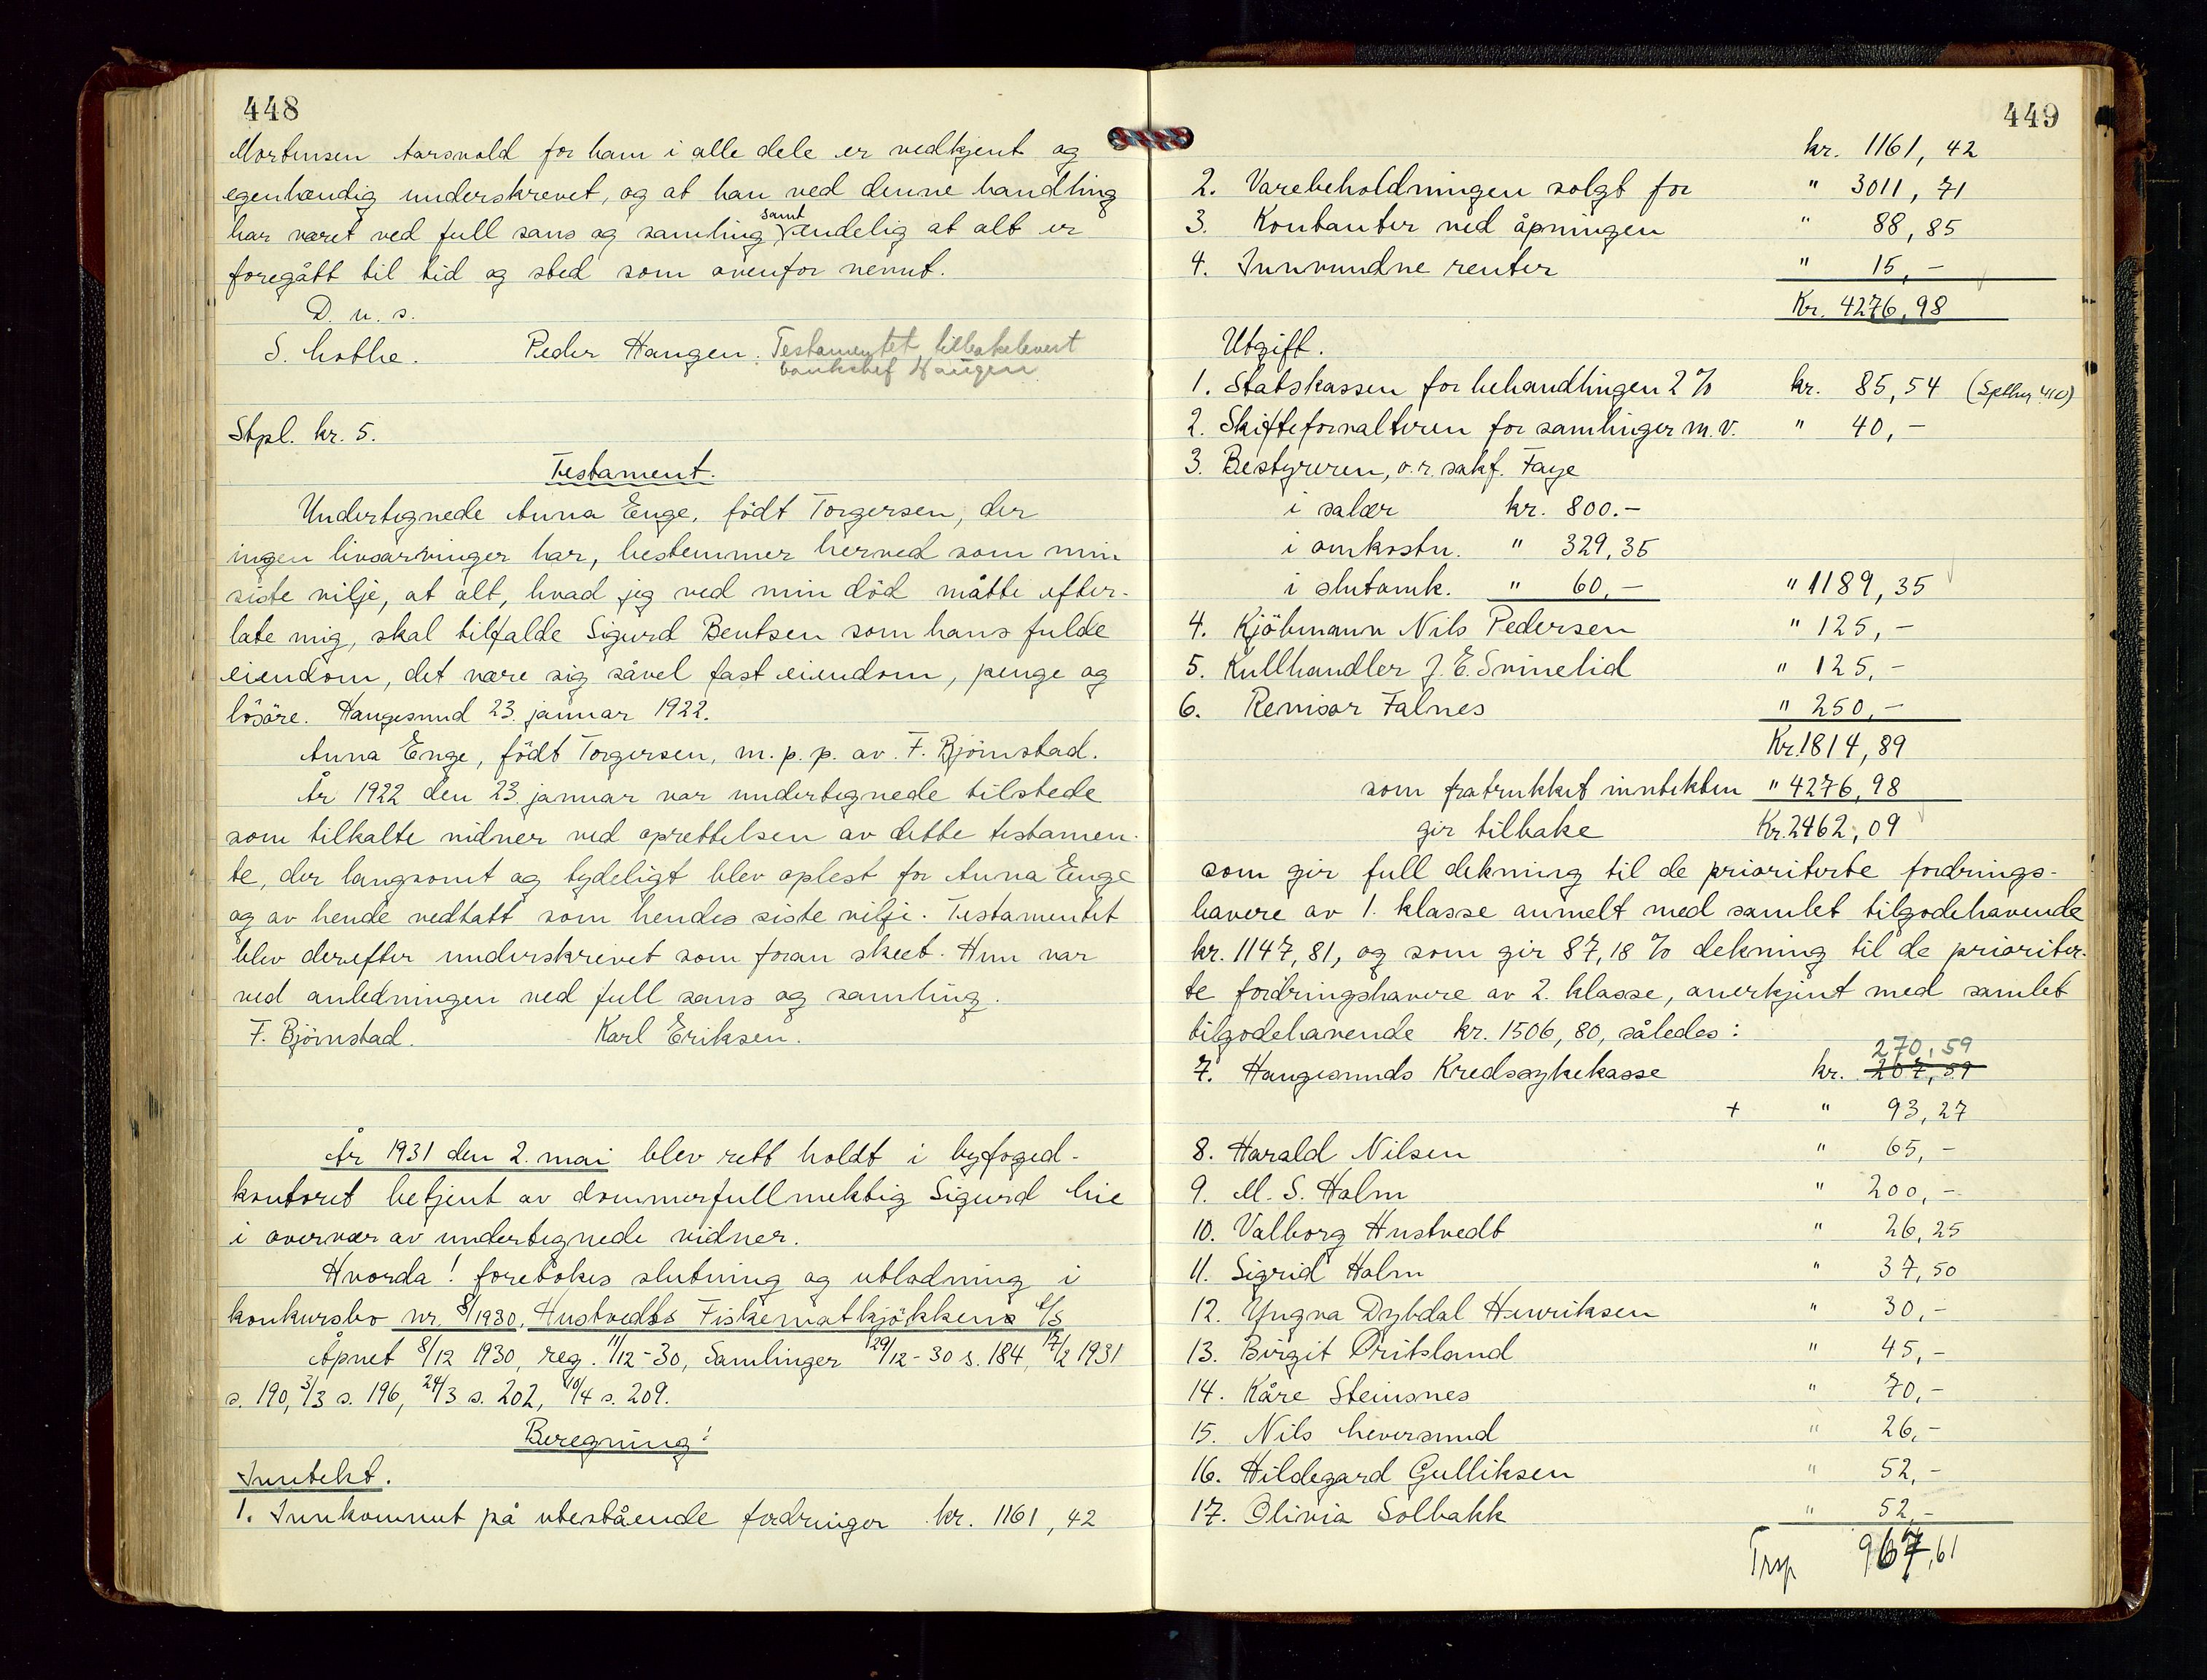 448
Mortensen Aarsvold for ham i alle dele er vedkjent og
egenhændig underskrevet, og at han ved denne handling
har været ved full sans og samling samt endelig at alt er
foregått til tid og sted som ovenfor nevnt.
D. u. s.
S. Lothe. Peder Haugen. Testamentet tilbakelevert
banksjef Haugen
Stpl. kr. 5.
Testament.
Undertegnede Anna Enge, födt Torgersen, der
ingen livsarvinger har, bestemmer herved som min
siste vilje, at alt, hvad jeg ved min död måtte efter-
late mig, skal tilfalde Sigurd Bentsen som hans fulde
eiendom, det være sig såvel fast eiendom, penge og
lösöre. Haugesund 23. januar 1922.
Anna Enge, födt Torgersen, m. p. p. av F. Björnstad.
År 1922 den 23. januar var undertegnede tilstede
som tilkalte vidner ved oprettelsen av dette testamen-
te, der langsomt og tydeligt blev oplest for Anna Enge
og av hende vedtatt som hendes siste vilje. Testamentet
blev derefter underskrevet som foran skeet. Hun var
ved anledningen ved full sans og samling.
F. Björnstad. Karl Eriksen.
År 1931 den 2. mai blev rett holdt i byfoged-
kontoret betjent av dommerfullmektig Sigurd Lie
i overvær av undertegnede vidner.
Hvorda! foretokes slutning og utlodning i
konkursbo nr. 8/1930, Hustvedts Fiskematkjökken A/S
Åpnet 8/12 1930, reg. 11/12-30, Samlinger 29/12-30 s. 184, 17/2 1931
s. 190, 3/3 s. 196, 24/3 s. 202, 10/4 s. 209.
Beregning:
Inntekt.
1. Innkommet på utestående fordringer kr. 1161,42
449
kr. 1161,42
2. Varebeholdningen solgt for " 3011,71
3. Kontanter ved åpningen " 88,85
4. Innvundne renter " 15,-
Kr. 4276,98
Utgift.
1. Statskassen for behandlingen 2% kr. 85,54
2. Skifteforvalteren for samlinger m.v. " 40,-
3. Bestyreren, o.r.sakf. Faye
i salær kr. 800.-
i omkostn. " 329,35
i slutomk. " 60,- " 1189,35
4. Kjöbmann Nils Pedersen " 125,-
5. Kullhandler J. E. Svinelid " 125,-
6. Revisor Falnes " 250,-
Kr. 1814,89
som fratrukket inntekten " 4276,98
gir tilbake Kr. 2462,09
som gir full dekning til de prioriterte fordrings-
havere av 1. klasse anmelt med samlet tilgodehavende
kr. 1147,81, og som gir 87,18 % dekning til de prioriter-
te fordringshavere av 2. klasse, anerkjent med samlet
tilgodehavende kr. 1506,80, således:
270,59
7. Haugesunds Kredssykekasse kr. 207,59
+ " 93,27
8. Harald Nilsen " 65,-
9. M. S. Halm " 200,-
10. Valborg Hustvedt " 26,25
11. Sigrid Halm " 37,50
12. Yngva Dybdal Henriksen " 30,-
13. Birgit Öritsland " 45,-
14. Kåre Steinsnes " 70,-
15. Nils Leversund " 26,-
16. Hildegard Gulliksen " 52,-
17. Olivia Solbakk " 52,-
Trsp 967,61